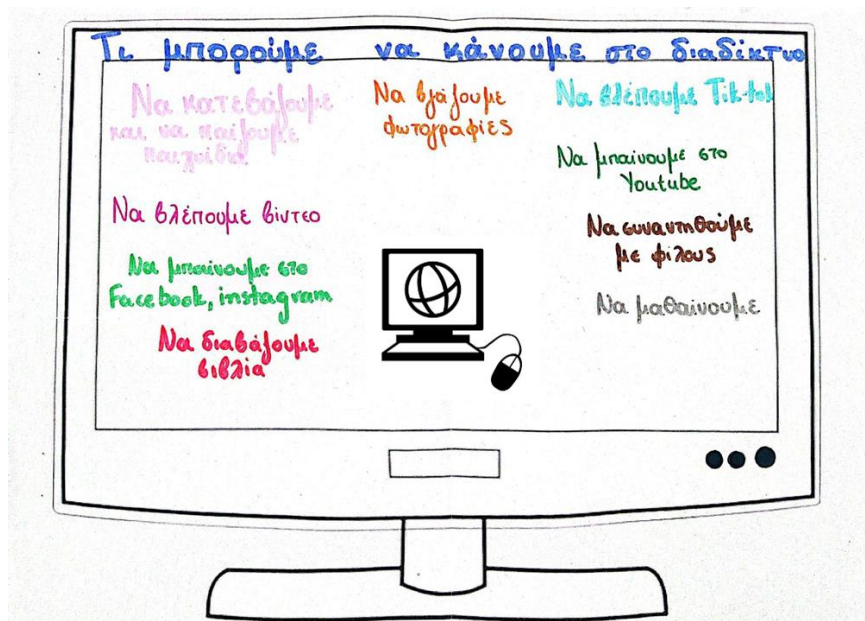 Τι μπορούμε να κάνουμε στο διαδίκτυο
Να κατεβάζουμε
και να παίζουμε
παιχνίδια
Να βλέπουμε βίντεο
Να μπαίνουμε στο
Facebook, instagram
Να διαβάζουμε
βιβλία
Να βγάζουμε
φωτογραφίες
Να βλέπουμε Tik-tok
Να μπαίνουμε στο
Youtube
Να συναντηθούμε
με φίλους
Να μαθαίνουμε